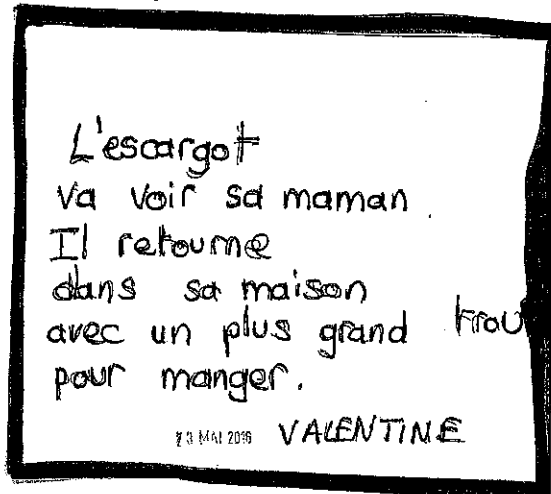 L'escargot
va voir sa maman.
Il retourne
dans sa maison
avec un plus grand trou
pour manger.
23 MAI 2016 VALENTINE